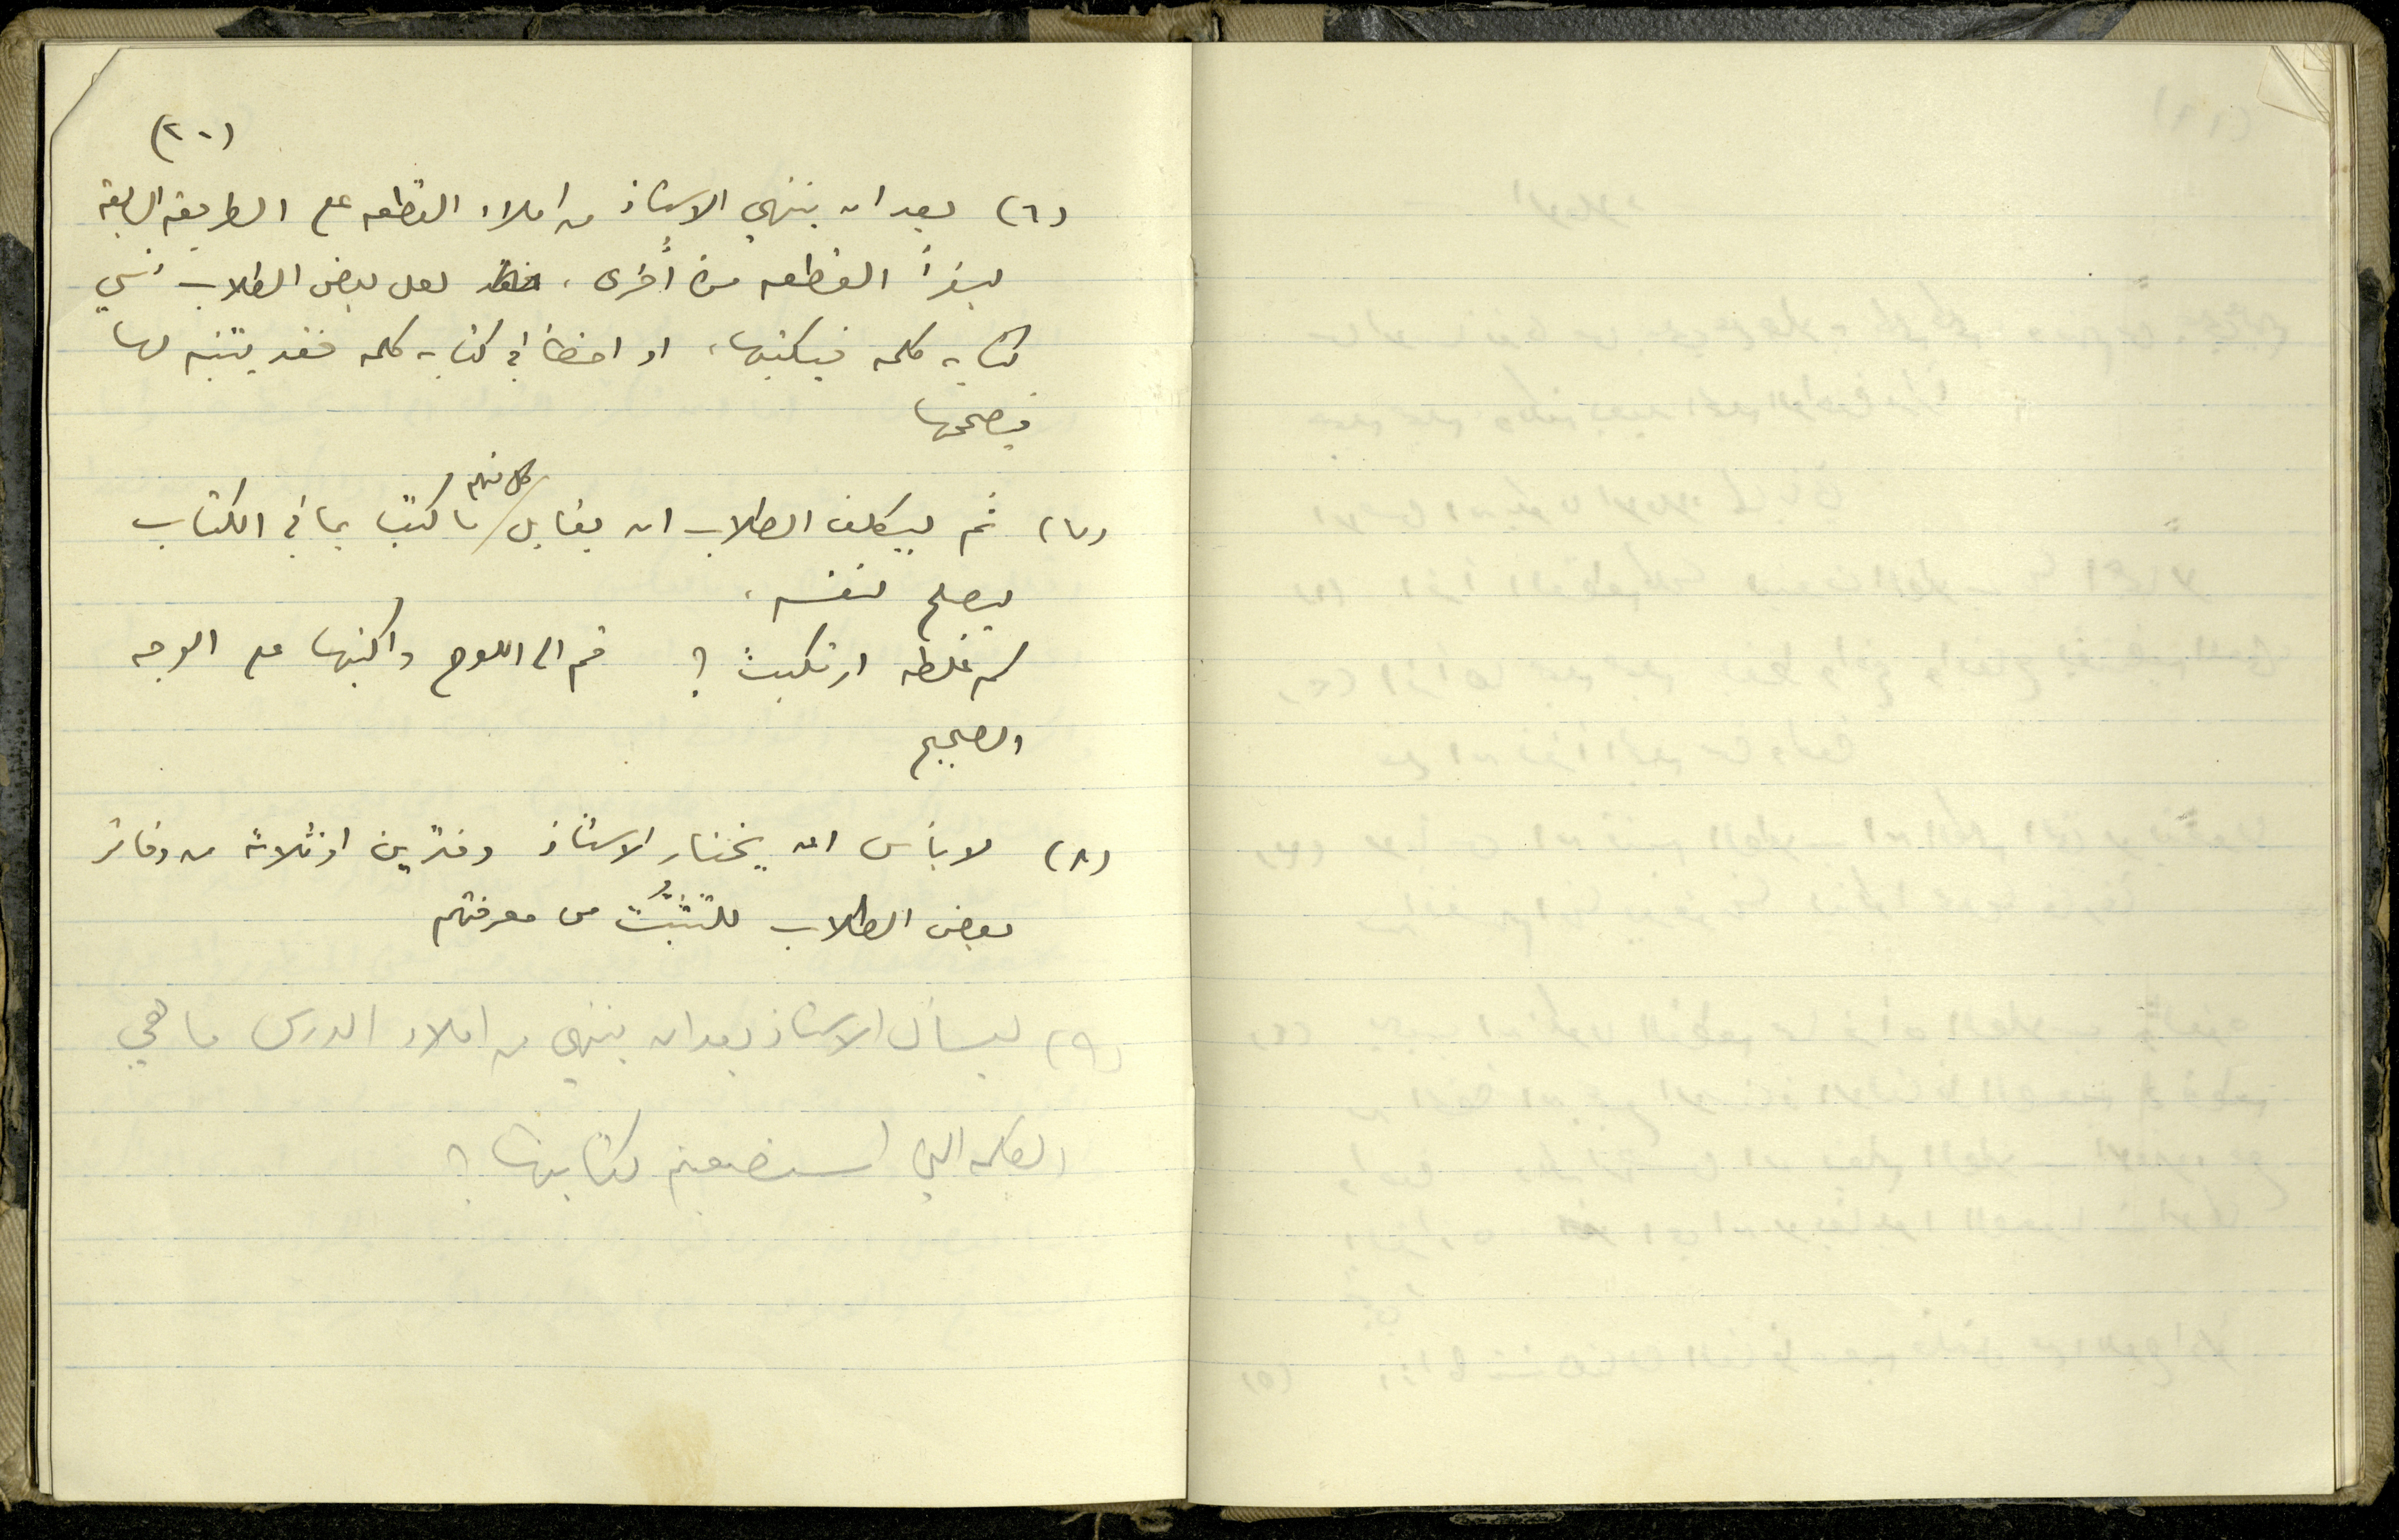 (٢٠)
(٦) بعد ان ينتهي الاستاذ من املاء القطعه على الطريقه السابقه
ليقرأ القطعه مرة أُخرى، لعل بعض الطلاب نسي
كتابة كلمه فيكتبها، او اخطأ في كتابة كلمه فقد يتنبه لها
فيصححها
(٧) ثم ليكلف الطلاب ان يقابل كل منهم ما كتب بما في الكتاب
ليصلح لنفسه،
كم غلطه ارتكبت؟ قم الى اللوح واكتبها على الوجه
الصحيح
(٨) لا بأس ان يختار الاستاذ دفترين او ثلاثة من دفاتر
بعض الطلاب للتثبُّت من معرفتهم
(٩) ليسأل الاستاذ بعد ان ينتهي من املاء الدرس ما هي
الكلمه التي استصعبتم كتابتها؟